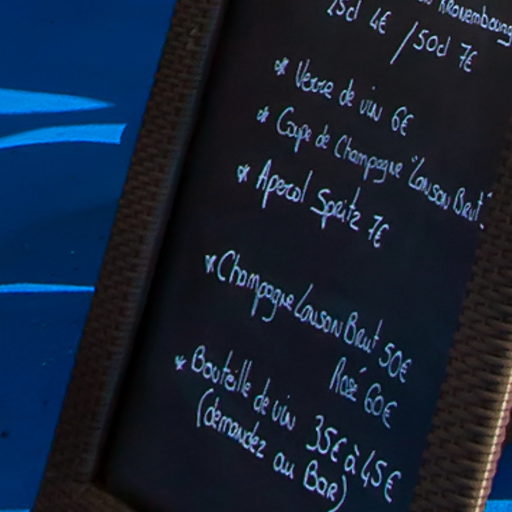 Kronembourg
25cl 4€ / 50cl 7€
* Verre de vin 6€
* Coupe de Champagne "Lanson Brut"
* Aperol Spritz 7€
* Champagne Lanson Brut 50€
Rosé 60€
* Bouteille de vin 35€ à 45€
(demandez au Bar)